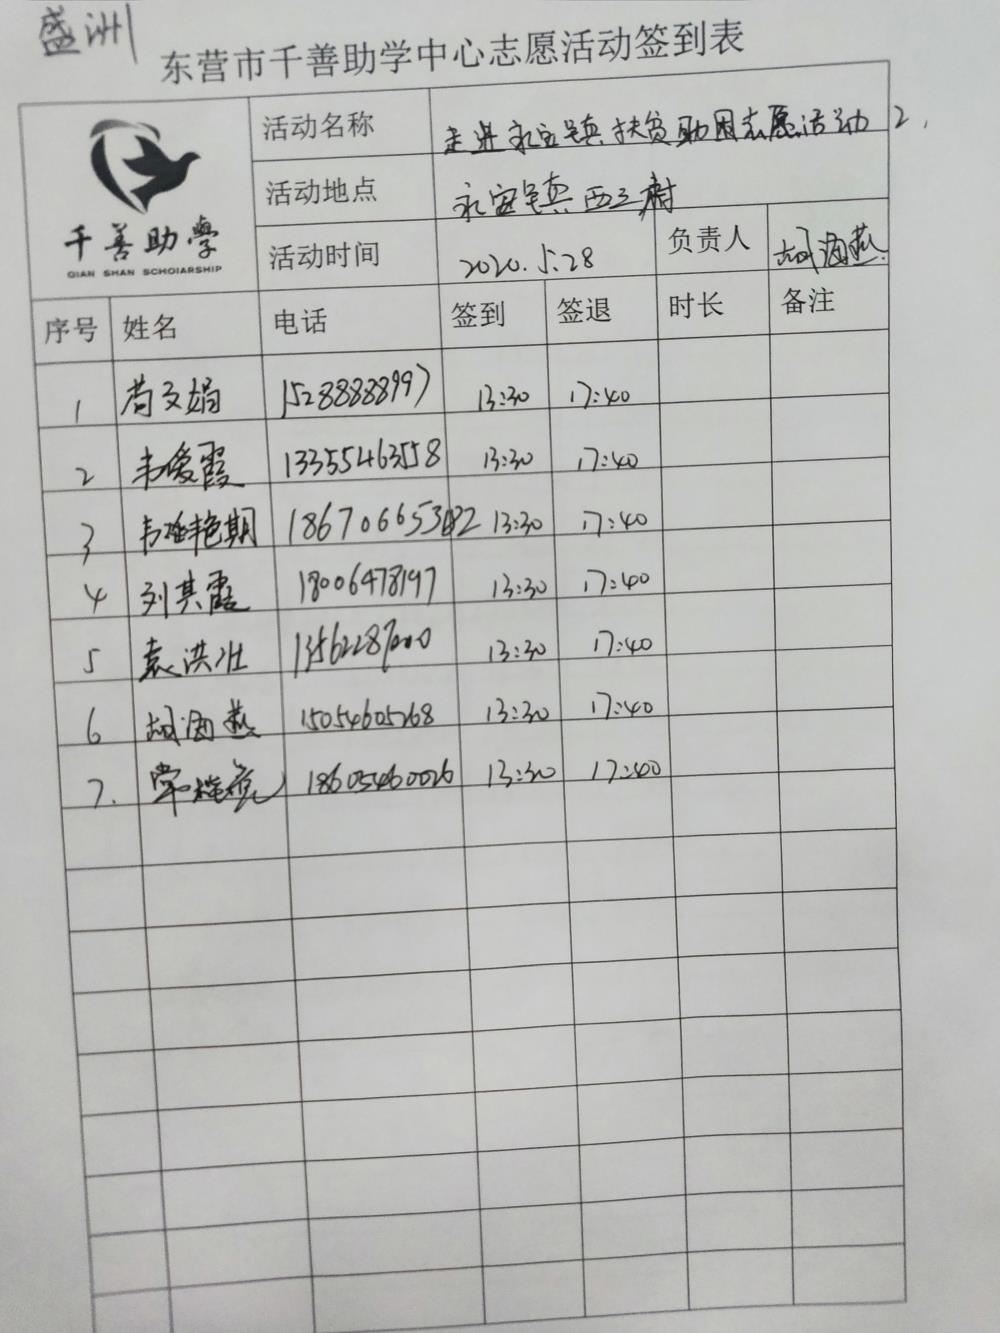 盛洲
东营市千善助学中心志愿活动签到表
千善助學
QIAN SHAN SCHOlARSHIP
活动名称 走进永安镇扶贫助困志愿活动2.
活动地点 永安镇西三村
活动时间 2020.5.28 负责人 胡海燕
序号 姓名 电话 签到 签退 时长 备注
1 苟文娟 15288888997 13:30 17:40
2 韦爱霞 13355463558 13:30 17:40
3 13:30 17:40
4 刘其霞 18006478197 13:30 17:40
5 袁洪壮 13562287000 13:30 17:40
6 胡海燕 15054605268 13:30 17:40
7. 18605460026 13:30 17:40